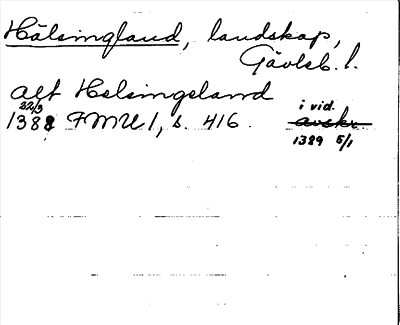 Hälsingland, landskap,
Gävleb. l.
alt Helsingeland
22/3 i vid.
1388 FMU 1, s. 416. avskr.
1389 5/1